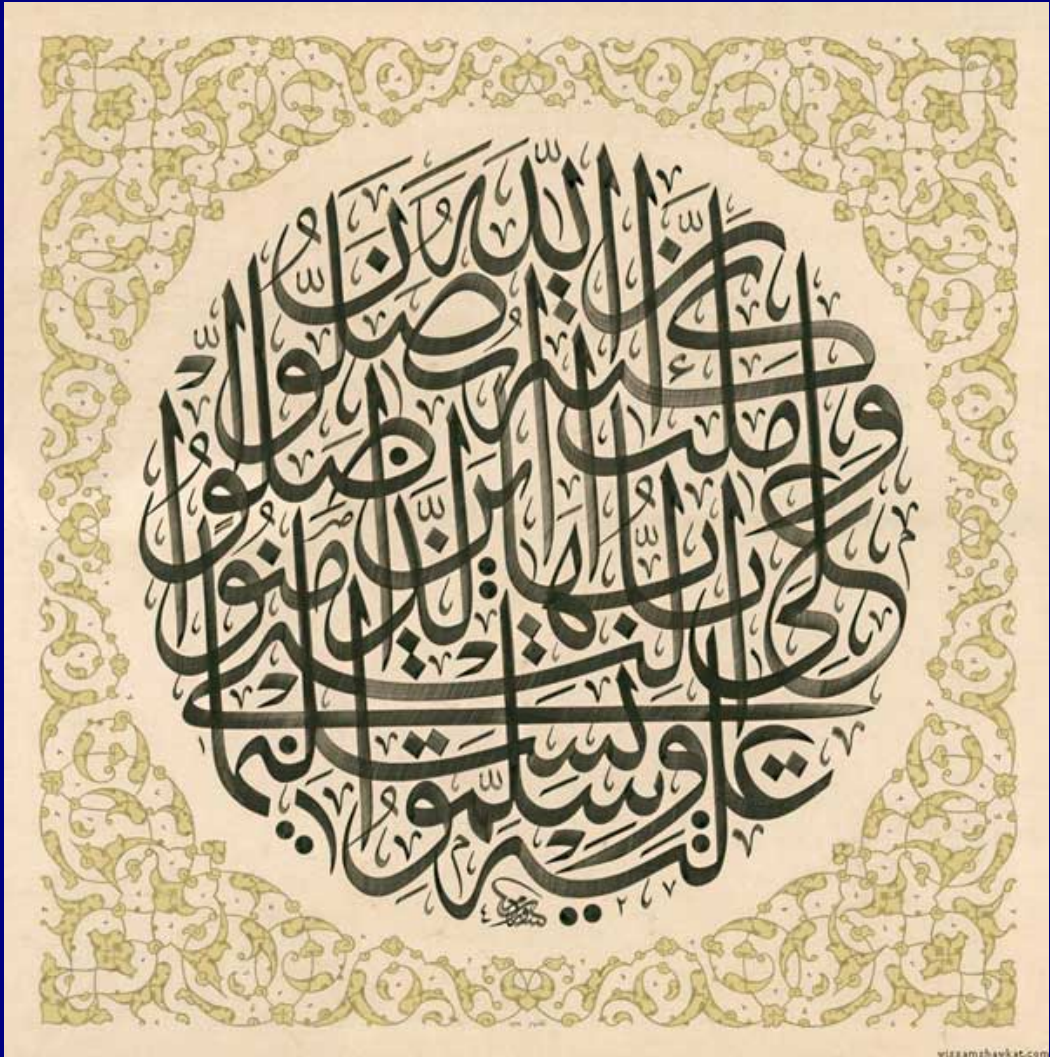 إن الله وملئكته يصلون على النبي يأيها الذين ءامنوا صلوا عليه وسلموا تسليما
wissamshawkat.com